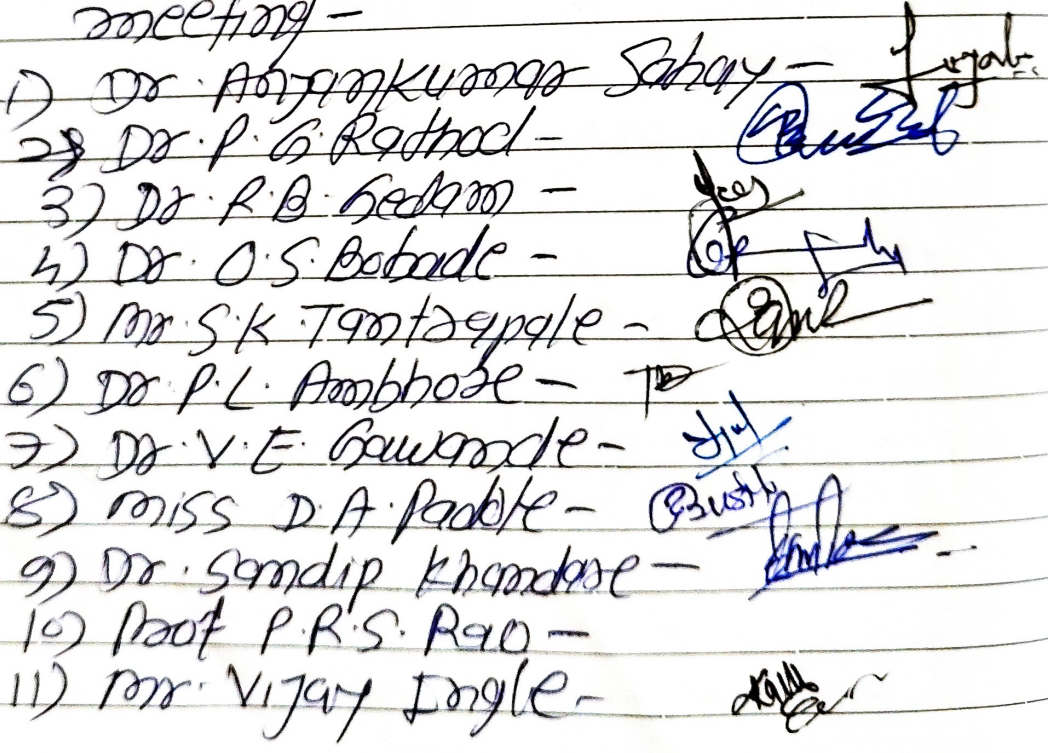 meeting -
1) Dr. Anjankumar Sahay -
2) Dr. P. G. Rathod -
3) Dr. R. B. Gedam -
4) Dr. O. S. Bobade -
5) Mr. S. K. Tantrapale -
6) Dr P. L. Ambhore -
7) Dr. V. E. Gawande -
8) Miss D. A. Padole -
9) Dr. Sandip Khandare -
10) Prof P. R. S. Rao -
11) Mr. Vijay Ingle -